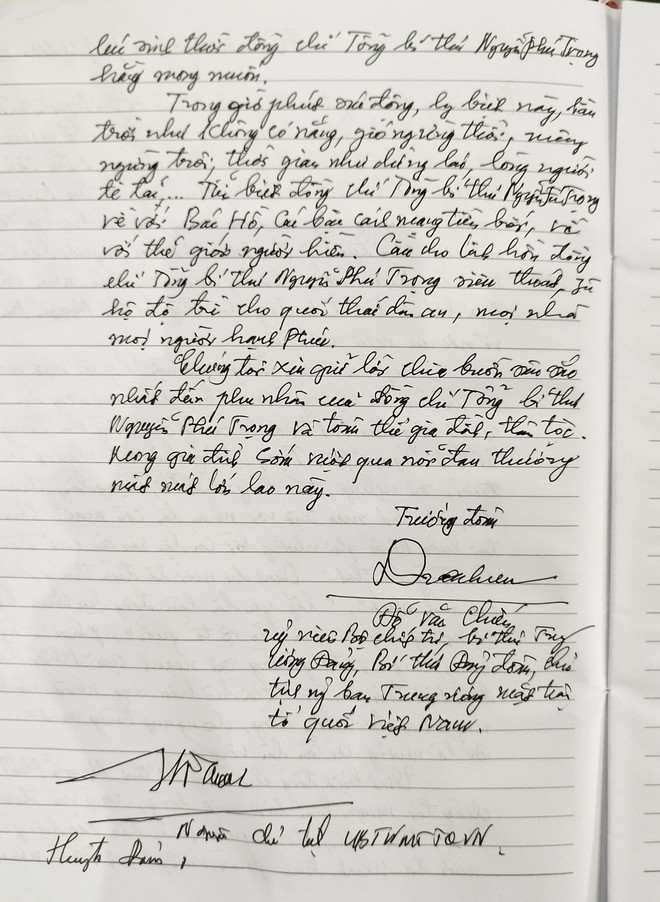 lúc sinh thời đồng chí Tổng bí thư Nguyễn Phú Trọng
hằng mong muốn.
Trong giờ phút xúc động, ly biệt này, bầu
trời như không có nắng, gió ngừng thổi, mây
ngừng trôi; thời gian như dừng lại, lòng người
tê tái... Tiễn biệt đồng chí Tổng bí thư Nguyễn Phú Trọng
về với Bác Hồ, các bậc cách mạng tiền bối, về
với thế giới người hiền. Cầu cho linh hồn đồng
chí Tổng bí thư Nguyễn Phú Trọng siêu thoát,
hộ độ trì cho quốc thái dân an, mọi nhà
mọi người hạnh phúc.
Chúng tôi xin gửi lời chia buồn sâu sắc
nhất đến phu nhân của đồng chí Tổng bí thư
Nguyễn Phú Trọng và toàn thể gia đình, thân tộc.
Mong gia đình sớm vượt qua nỗi đau thương
mất mát lớn lao này.
Trưởng đoàn
Đỗ Văn Chiến
uỷ viên Bộ chính trị, bí thư Trung
ương Đảng, Bí thư Đảng đoàn, chủ
tịch uỷ ban Trung ương mặt trận
tổ quốc việt Nam.
Nguyên chủ tịch UBTWMTTQVN.
Huỳnh Đảm,